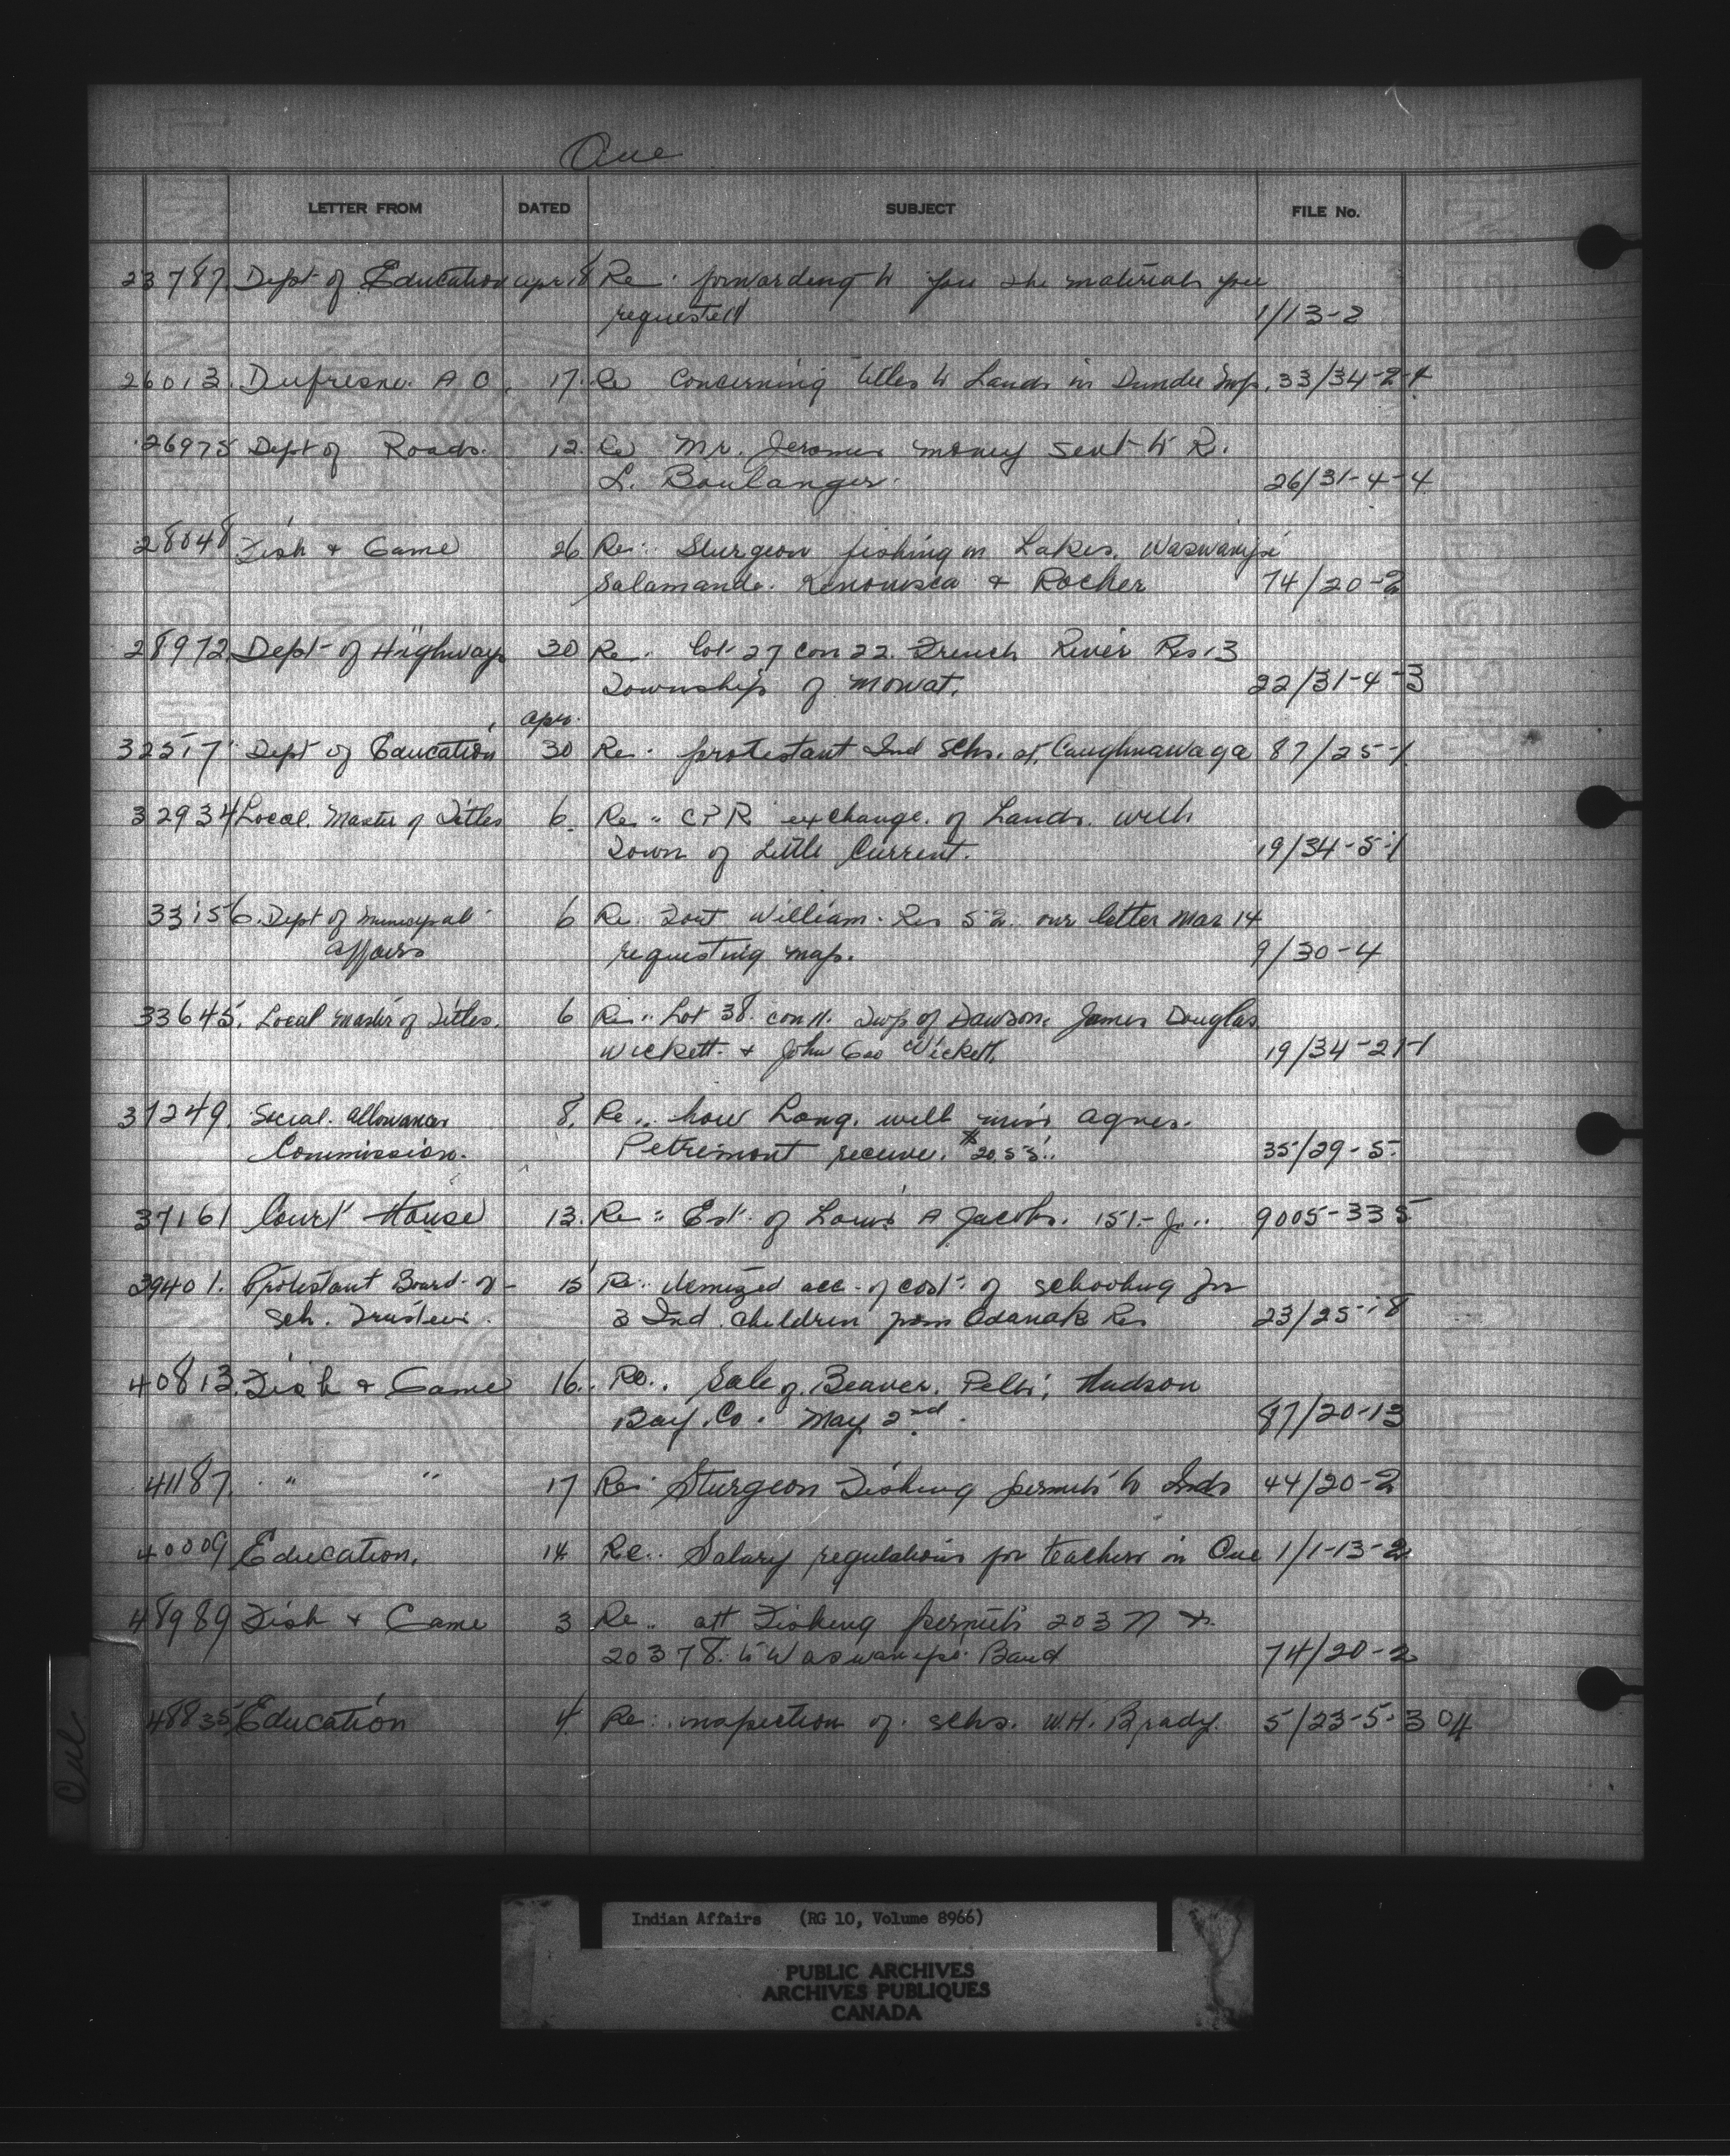 Que
LETTER FROM DATED SUBJECT FILE No.
23787. Dept of Education Apr 18 Re: forwarding to you the materials you
requested 1/13-2
26013. Dufresne. A O. 17. Re Concerning titles to Lands in Dundee Twp. 33/34-2-4
26975 Dept of Roads. 12. Re Mr. Jeromes money sent to R.
L. Boulanger. 26/31-4-4
28048 Fish & Game 26 Re: Sturgeon fishing in Lakes. Waswanipi
Salamande. Kenonisca & Rocher 74/20-2
28972 Dept of Highways 30 Re. lot 27 con 22. French River Res 13
Township of Mowat. 22/31-4-3
Apr.
32517 Dept of Education 30 Re: protestant Ind Schs. at Caughnawaga 87/25-1
32934 Local. Master of Titles 6. Re. CPR exchange. of Lands. with
Town of Little Current. 19/34-5-1
33156. Dept of Municipal 6 Re. Fort William. Res 52. our letter Mar 14
Affairs requesting map. 9/30-4
33645. Local Master of Titles. 6 Re.. Lot 38. con 11. Twp of Dawson. James Douglas
Wickett. & John Geo Wickett. 19/34-21-1
37249. Social. Allowances 8. Re.. how Long. will miss Agnes.
Commission. Petremont receive. $20.55. 35/29-5.
37161 Court House 13. Re: Est. of Louis A Jacobs. 151.- 9005-335
39401. Protestant Board of 15 Re: itemized acc. of cost of schooling for
Sch. Trustees. 3 Ind. children from Odanak Res 23/25-18
40813. Fish & Game 16. Re.. Sale of Beaver. Pelts, Hudson
Bay. Co. May 2nd. 87/20-13
41187. " " 17 Re: Sturgeon Fishing permits to Inds 44/20-2
40009 Education. 14 Re.. Salary regulations for teachers in Que 1/1-13-2
48989 Fish & Game 3 Re.. att Fishing permits 20377 &
20378. to Waswanipi Band 74/20-2
48835 Education 4. Re: inspection of. schs. W.H. Brady. 5/23-5-304
Que
Indian Affairs (RG 10, Volume 8966)
PUBLIC ARCHIVES
ARCHIVES PUBLIQUES
CANADA